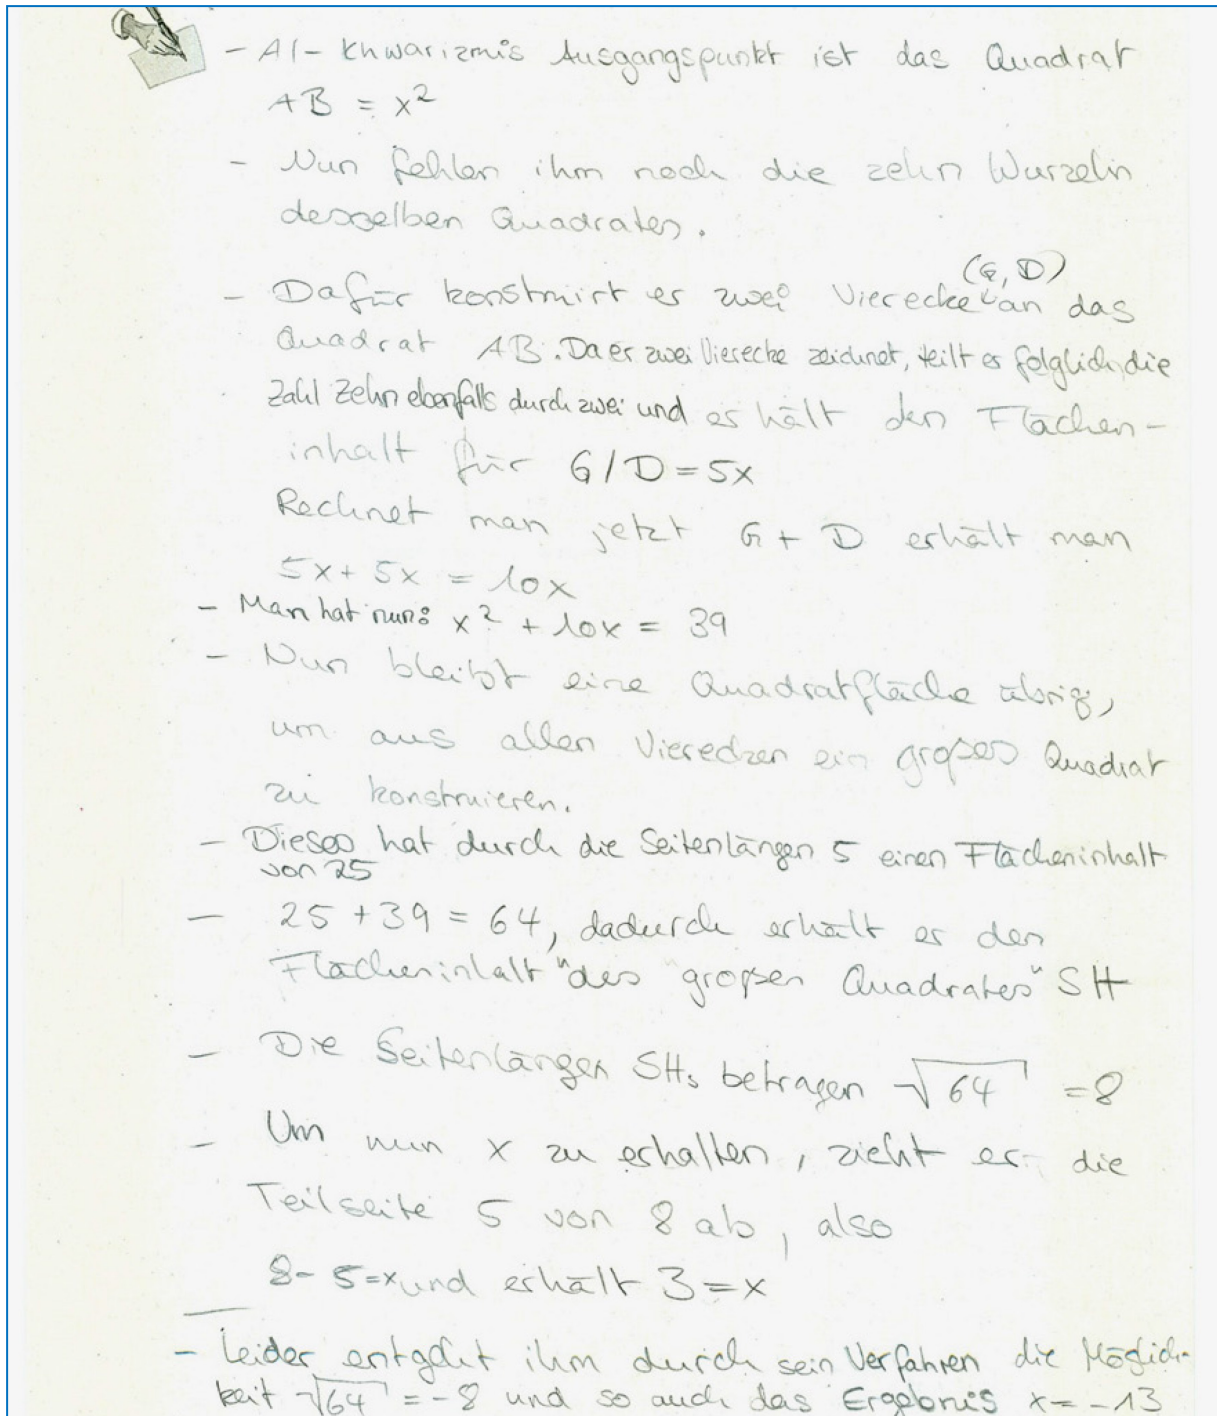 - Al-Khwarizmis Ausgangspunkt ist das Quadrat
AB = x²
- Nun fehlen ihm noch die zehn Wurzeln
desselben Quadrates.
- Dafür konstruirt er zwei Vierecke (G, D) an das
Quadrat AB. Da er zwei Vierecke zeichnet, teilt er folglich die
Zahl zehn ebenfalls durch zwei und erhält den Flächen-
inhalt für G/D = 5x
Rechnet man jetzt G + D erhält man
5x + 5x = 10x
- Man hat nun: x² + 10x = 39
- Nun bleibt eine Quadratfläche übrig,
um aus allen Vierecken ein großes Quadrat
zu konstruieren.
- Dieses hat durch die Seitenlängen 5 einen Flächeninhalt
von 25
- 25 + 39 = 64, dadurch erhält er den
Flächeninhalt "des großen Quadrates" SH
- Die Seitenlängen SHs betragen √64 = 8
- Um nun x zu erhalten, zieht er die
Teilseite 5 von 8 ab, also
8 - 5 = x und erhält 3 = x
- Leider entgeht ihm durch sein Verfahren die Möglich-
keit √64 = -8 und so auch das Ergebnis x = -13